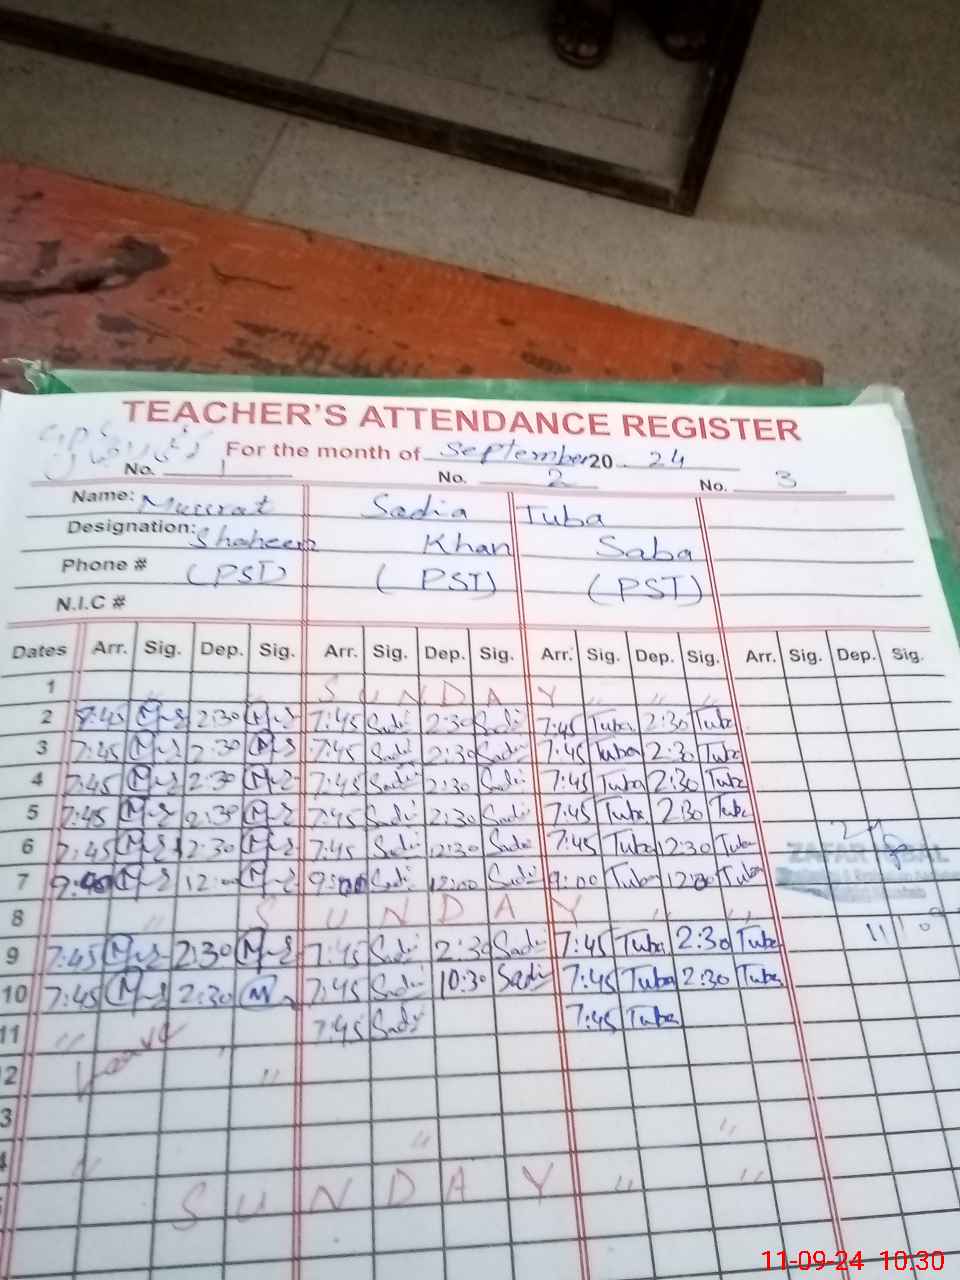 TEACHER'S ATTENDANCE REGISTER
For the month of September 20 24
No. 1 No. 2 No. 3
Name: Mussrat Sadia Tuba
Designation: Shaheen Khan Saba
Phone # (PST) (PST) (PST)
N.I.C #
Dates Arr. Sig. Dep. Sig. Arr. Sig. Dep. Sig. Arr. Sig. Dep. Sig. Arr. Sig. Dep. Sig.
1 " " S U N D A Y " " "
2 7:45 2:30 7:45 Sadi 2:30 Sadi 7:45 Tuba 2:30 Tuba
3 7:45 2:30 7:45 Sadi 2:30 Sadi 7:45 Tuba 2:30 Tuba
4 7:45 2:30 7:45 Sadi 2:30 Sadi 7:45 Tuba 2:30 Tuba
5 7:45 2:30 7:45 Sadi 2:30 Sadi 7:45 Tuba 2:30 Tuba
6 7:45 12:30 7:45 Sadi 12:30 Sadi 7:45 Tuba 12:30 Tuba
7 9:00 12:00 9:00 Sadi 12:00 Sadi 9:00 Tuba 12:00 Tuba
ZAFAR IQBAL
8 " S U N D A Y " "
9 7:45 2:30 7:45 Sadi 2:30 Sadi 7:45 Tuba 2:30 Tuba
10 7:45 2:30 7:45 Sadi 10:30 Sadi 7:45 Tuba 2:30 Tuba
11 " Leave 7:45 Sadi 7:45 Tuba
2 "
3 " "
4 "
S U N D A Y " "
11-09-24 10.30